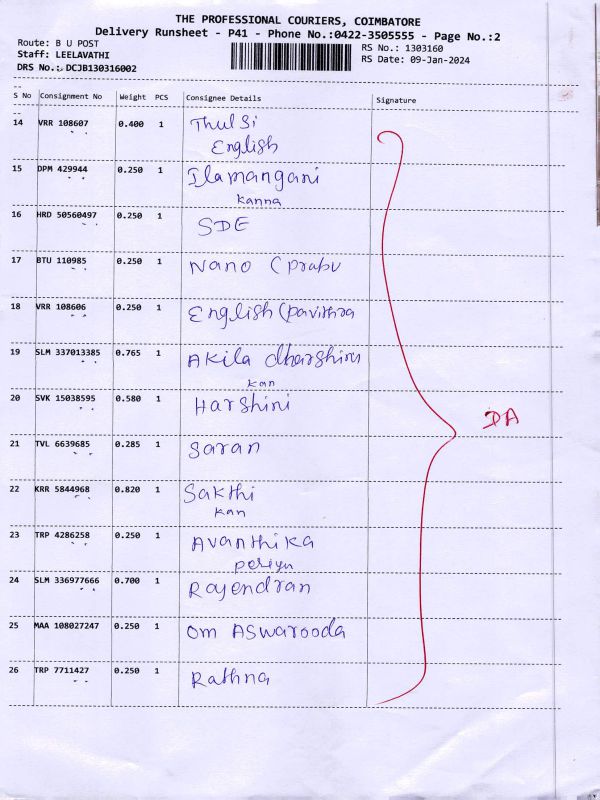 THE PROFESSIONAL COURIERS, COIMBATORE
Delivery Runsheet - P41 - Phone No.:0422-3505555 - Page No.:2
Route: B U POST
Staff: LEELAVATHI
DRS No.: DCJB130316002
RS No.: 1303160
RS Date: 09-Jan-2024
S No Consignment No Weight PCS Consignee Details Signature
14 VRR 108607 0.400 1 Thulsi
English
15 DPM 429944 0.250 1 Ilamangani
kanna
16 HRD 50560497 0.250 1 SDE
17 BTU 110985 0.250 1 Nano (prabu
18 VRR 108606 0.250 1 English (pavithra
19 SLM 337013385 0.765 1 Akila dharshinu
kan
20 SVK 15038595 0.580 1 Harshini
21 TVL 6639685 0.285 1 Saran
22 KRR 5844968 0.820 1 Sakthi
kan
23 TRP 4286258 0.250 1 Avanthika
periyn
24 SLM 336977666 0.700 1 Rajendran
25 MAA 108027247 0.250 1 Om Aswarooda
26 TRP 7711427 0.250 1 Rathna
DA